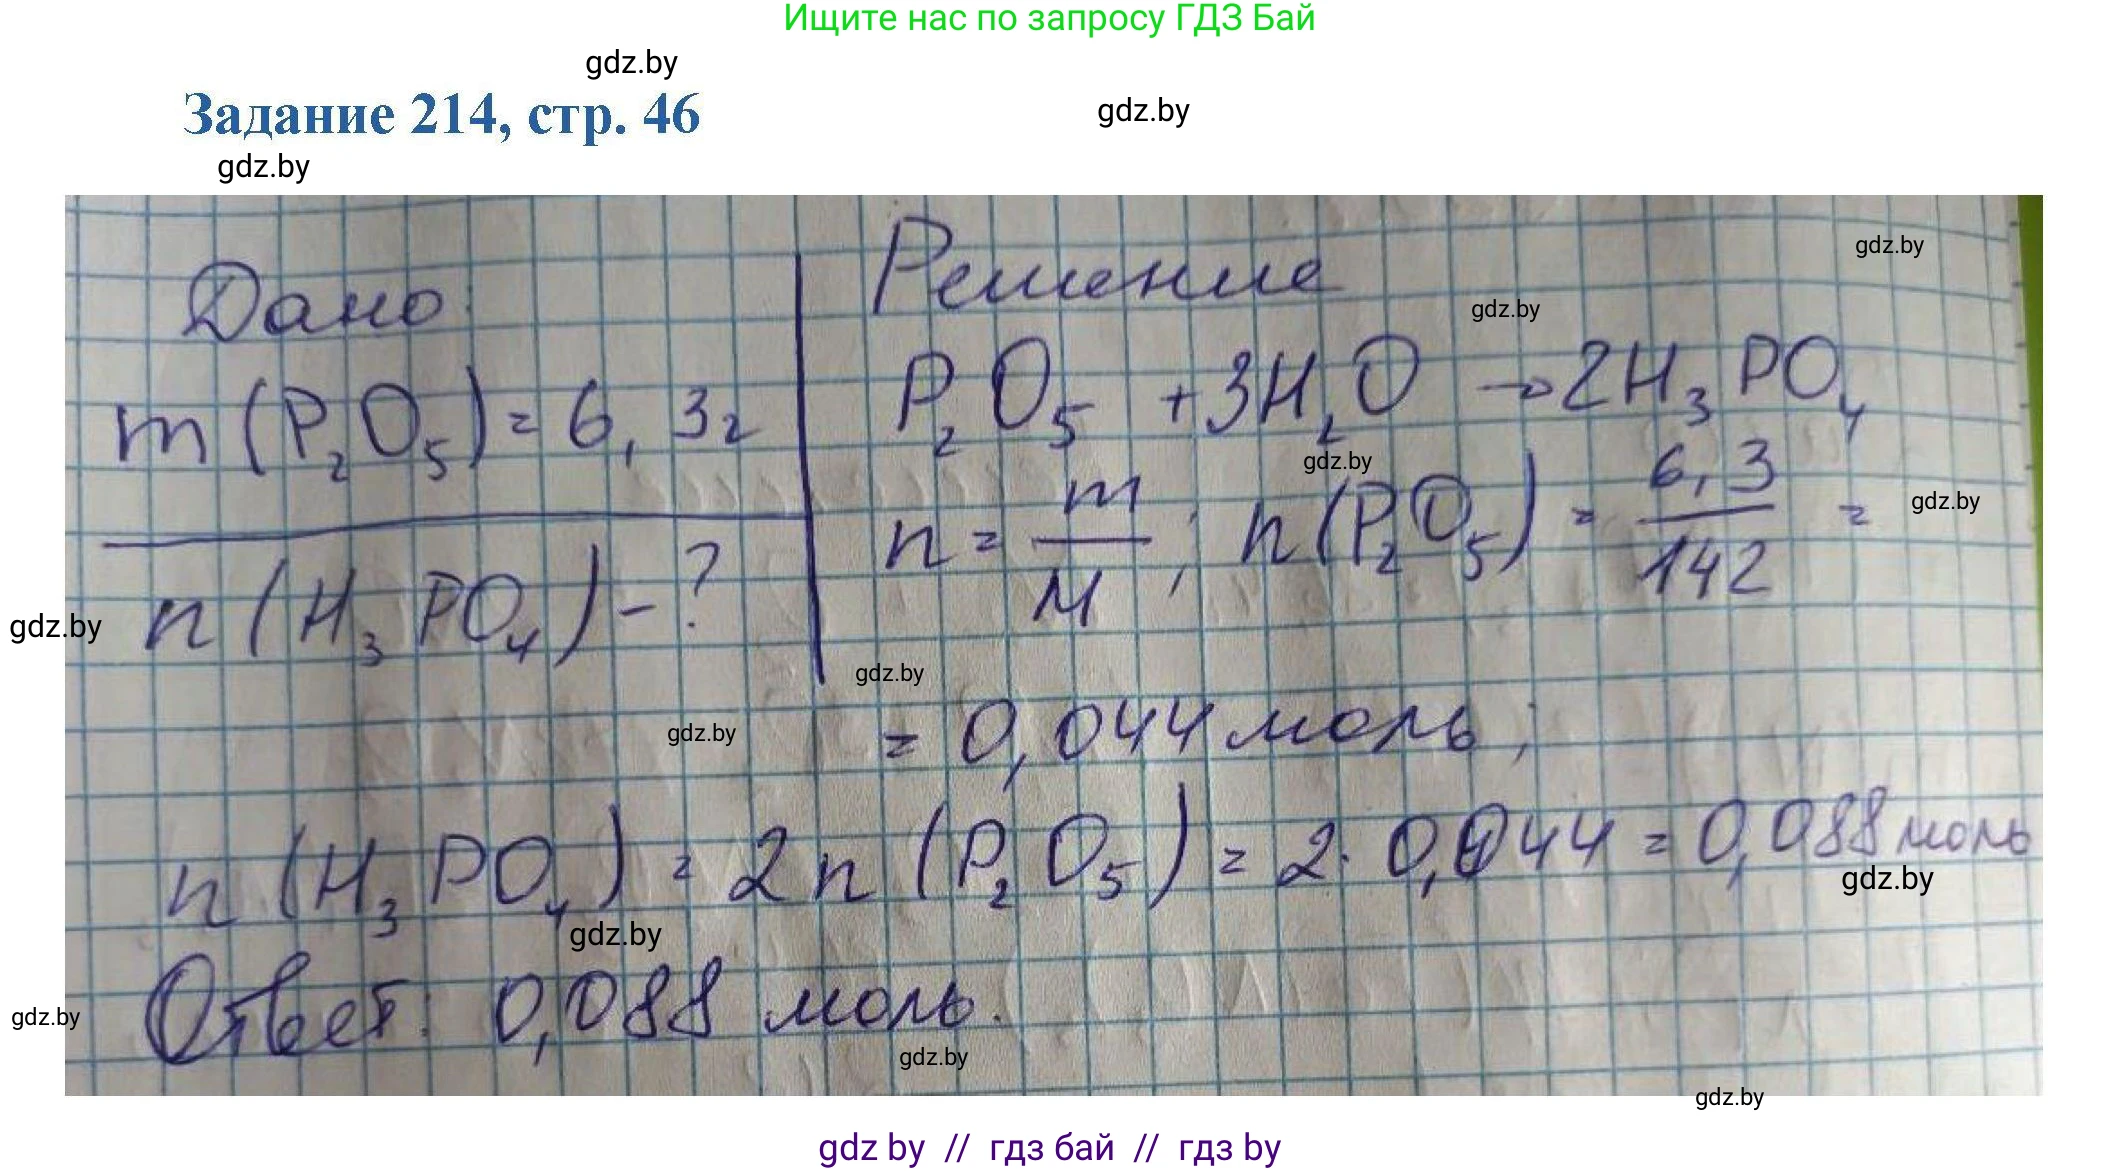 Ищите нас по запросу ГДЗ Бай
gdz.by
Задание 214, стр. 46
gdz.by
gdz.by
Дано:
m(P₂O₅) = 6,3г
n(H₃PO₄) - ?
Решение
gdz.by
gdz.by
P₂O₅ + 3H₂O → 2H₃PO₄
gdz.by
n = m/M; n(P₂O₅) = 6,3/142 =
gdz.by
gdz.by
gdz.by
gdz.by
= 0,044 моль;
n(H₃PO₄) = 2n(P₂O₅) = 2·0,044 = 0,088 моль
gdz.by
gdz.by
Ответ: 0,088 моль.
gdz.by
gdz.by
gdz.by
gdz by // гдз бай // гдз by